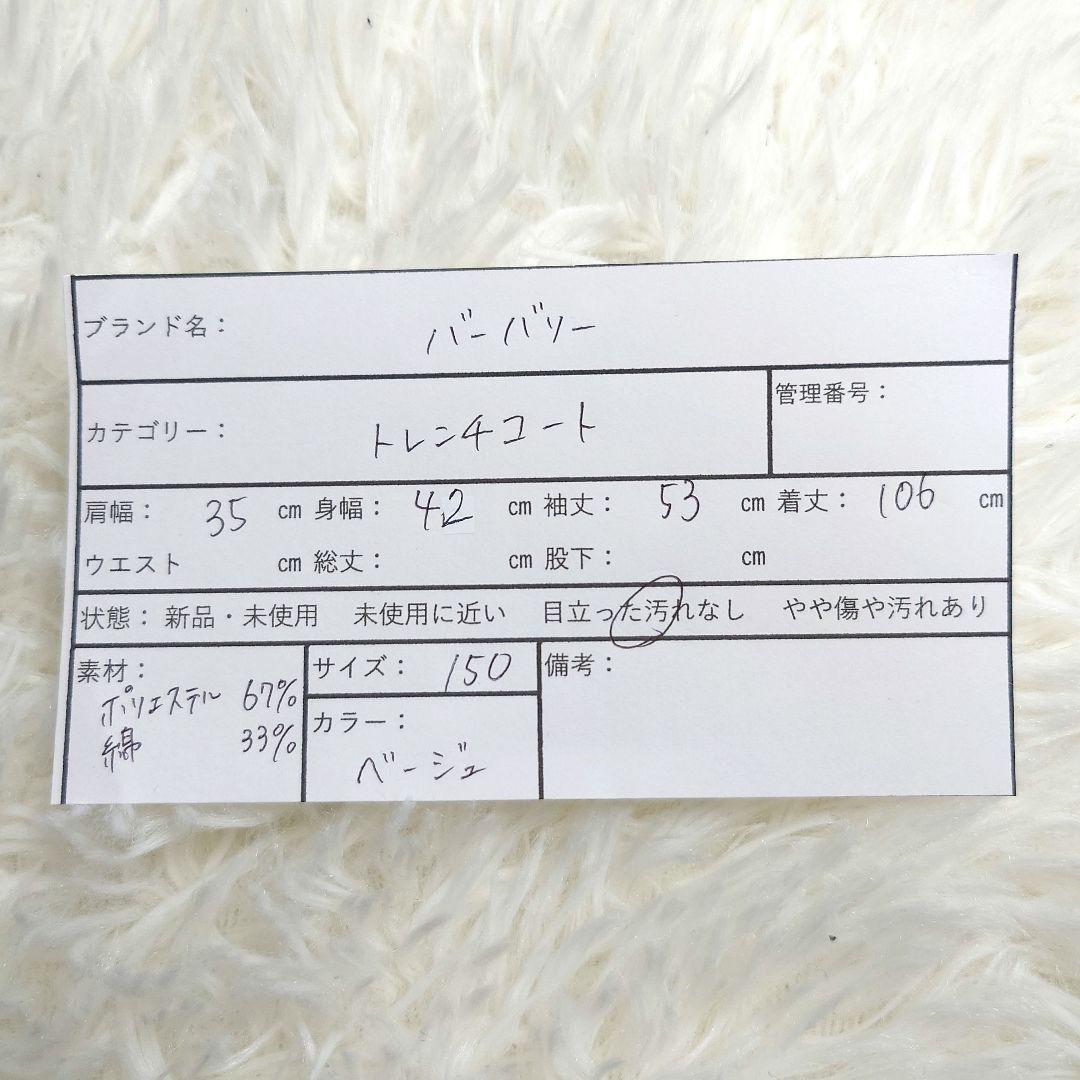 ブランド名： バーバリー
カテゴリー： トレンチコート 管理番号：
肩幅： 35 cm 身幅： 42 cm 袖丈： 53 cm 着丈： 106 cm
ウエスト cm 総丈： cm 股下： cm
状態： 新品・未使用 未使用に近い 目立った汚れなし やや傷や汚れあり
素材： サイズ： 150 備考：
ポリエステル 67%
綿 33%
カラー：
ベージュ